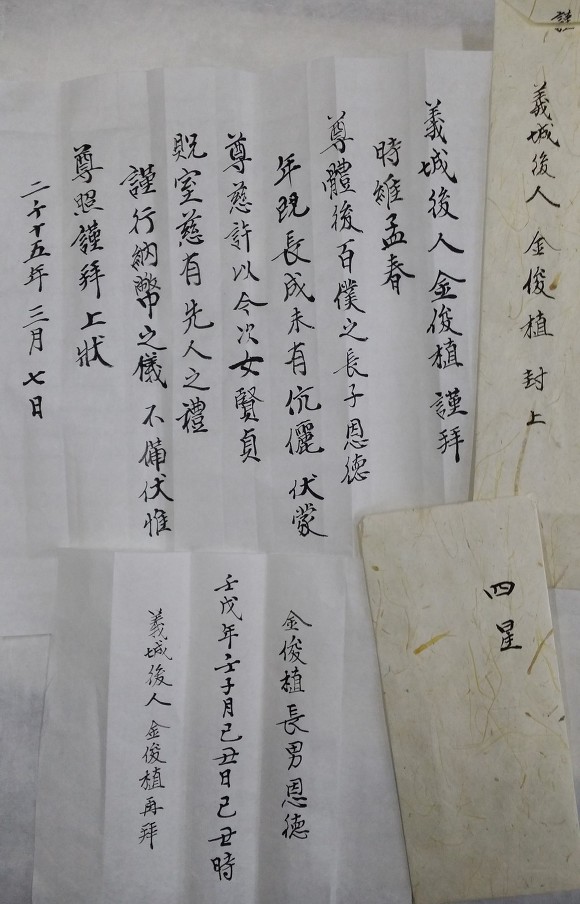 謹
義城後人 金俊植 封上
義城後人金俊植 謹拜
時維孟春
尊體後百僕之長子恩德
年既長成未有伉儷 伏蒙
尊慈許以令次女賢貞
貺室慈有先人之禮
謹行納幣之儀 不備伏惟
尊照謹拜上狀
二千十五年 三月 七日
四星
金俊植長男恩德
壬戌年壬子月己丑日己丑時
義城後人 金俊植再拜